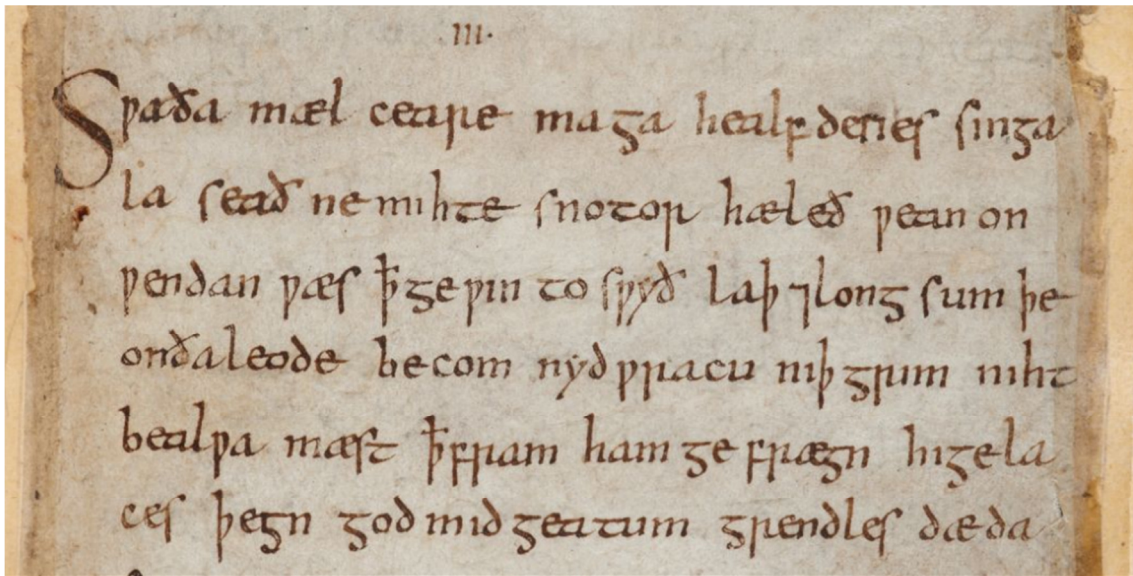 .III.
Sƿaða mæl ceare maga healfdenes singa
la seað ne mihte snotor hæleð ƿean on
ƿendan ƿæs ꝥ geƿin to sƿyð laþ ⁊long sum þe
onða leode be com nyd ƿracu niþ grim niht
bealƿa mæst ꝥ fram ham ge frægn higela
ces þegn god mid geatum grendles dæda